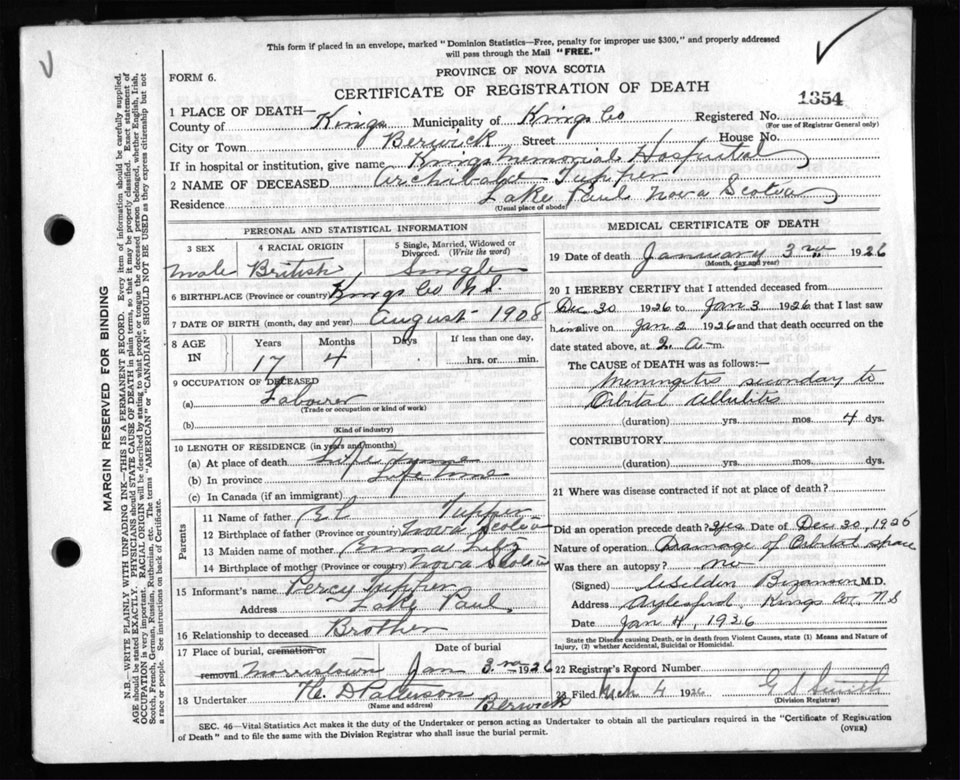 This form if placed in an envelope, marked "Dominion Statistics—Free, penalty for improper use $300," and properly addressed
will pass through the Mail "FREE."
FORM 6.
PROVINCE OF NOVA SCOTIA
CERTIFICATE OF REGISTRATION OF DEATH
1354
1 PLACE OF DEATH—
County of Kings Municipality of Kings Co Registered No.
(For use of Registrar General only)
City or Town Berwick Street House No.
If in hospital or institution, give name Kings Memorial Hospital
2 NAME OF DECEASED Archibald Tupper
Residence Lake Paul Nova Scotia
(Usual place of abode)
MARGIN RESERVED FOR BINDING
N.B.—WRITE PLAINLY WITH UNFADING INK—THIS IS A PERMANENT RECORD. Every item of information should be carefully supplied.
AGE should be stated EXACTLY. PHYSICIANS should STATE CAUSE OF DEATH in plain terms, so that it may be properly classified. Exact statement of
OCCUPATION is very important. RACIAL ORIGIN will be described by stating to what people or tongue the deceased person belonged, whether English, Irish,
Scotch, French, German, Russian, Ruthenian, etc. The terms "AMERICAN" or "CANADIAN" SHOULD NOT BE USED as they express citizenship but not
a race or people. See instructions on back of Certificate.
PERSONAL AND STATISTICAL INFORMATION
3 SEX 4 RACIAL ORIGIN 5 Single, Married, Widowed or
Divorced. (Write the word)
Male British Single
6 BIRTHPLACE (Province or country) Kings Co N.S.
7 DATE OF BIRTH (month, day and year) August 1908
8 AGE IN Years Months Days If less than one day,
17 4 hrs. or min.
9 OCCUPATION OF DECEASED
(a) Labourer
(Trade or occupation or kind of work)
(b)
(Kind of industry)
10 LENGTH OF RESIDENCE (in years and months)
(a) At place of death Life time
(b) In province Life time
(c) In Canada (if an immigrant)
Parents
11 Name of father Tupper
12 Birthplace of father (Province or country) Nova Scotia
13 Maiden name of mother Emma
14 Birthplace of mother (Province or country) Nova Scotia
15 Informant's name Percy Tupper
Address Lake Paul
16 Relationship to deceased Brother
17 Place of burial, cremation or removal Date of burial
Morristown Jan 3rd 1926
18 Undertaker Patterson
(Name and address) Berwick
MEDICAL CERTIFICATE OF DEATH
19 Date of death January 3rd 1926
(Month, day and year)
20 I HEREBY CERTIFY that I attended deceased from
Dec 30 1926 to Jan 3 1926 that I last saw
him alive on Jan 2 1926 and that death occurred on the
date stated above, at 2 a-m.
The CAUSE of DEATH was as follows:—
Meningitis secondary to
Orbital Cellulitis
(duration) yrs. mos. 4 dys.
CONTRIBUTORY
(duration) yrs. mos. dys.
21 Where was disease contracted if not at place of death?
Did an operation precede death? Yes Date of Dec 30, 1926
Nature of operation Damage of Orbital space
Was there an autopsy? no
(Signed) M.D.
Address Aylesford, Kings Co. N S
Date Jan 4, 1926
State the Disease causing Death, or in death from Violent Causes, state (1) Means and Nature of
Injury, (2) whether Accidental, Suicidal or Homicidal.
22 Registrar's Record Number
23 Filed Mch 4 1926 G S Smith
(Division Registrar)
SEC. 46—Vital Statistics Act makes it the duty of the Undertaker or person acting as Undertaker to obtain all the particulars required in the "Certificate of Registration
of Death" and to file the same with the Division Registrar who shall issue the burial permit.
(OVER)